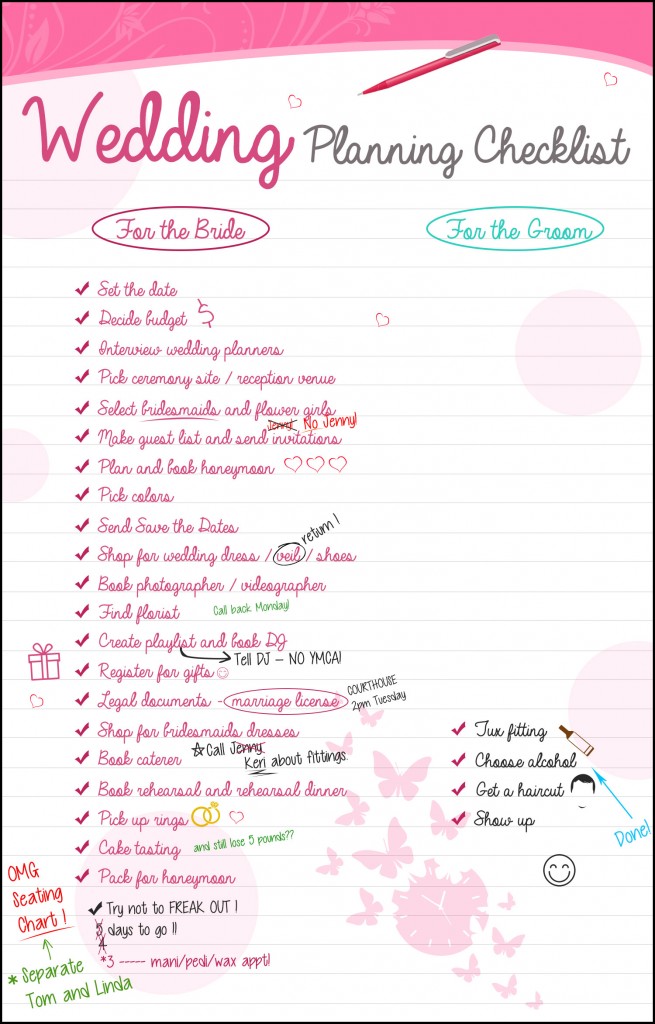 Wedding Planning Checklist
For the Bride
For the Groom
Set the date
Decide budget $
Interview wedding planners
Pick ceremony site / reception venue
Select bridesmaids and flower girls
Jenny No Jenny!
Make guest list and send invitations
Plan and book honeymoon
Pick colors
Send Save the Dates
return !
Shop for wedding dress / veil / shoes
Book photographer / videographer
Find florist
Call back Monday!
Create playlist and book DJ
Tell DJ – NO YMCA!
Register for gifts
Legal documents - marriage license
COURTHOUSE
2pm Tuesday
Shop for bridesmaids dresses
Book caterer
Call Jenny
Keri about fittings.
Book rehearsal and rehearsal dinner
Pick up rings
Cake tasting
and still lose 5 pounds??
Pack for honeymoon
Try not to FREAK OUT !
5 days to go !!
4
*3 ----- mani/pedi/wax appt!
OMG
Seating
Chart !
* Separate
Tom and Linda
Tux fitting
Choose alcohol
Get a haircut
Show up
Done!